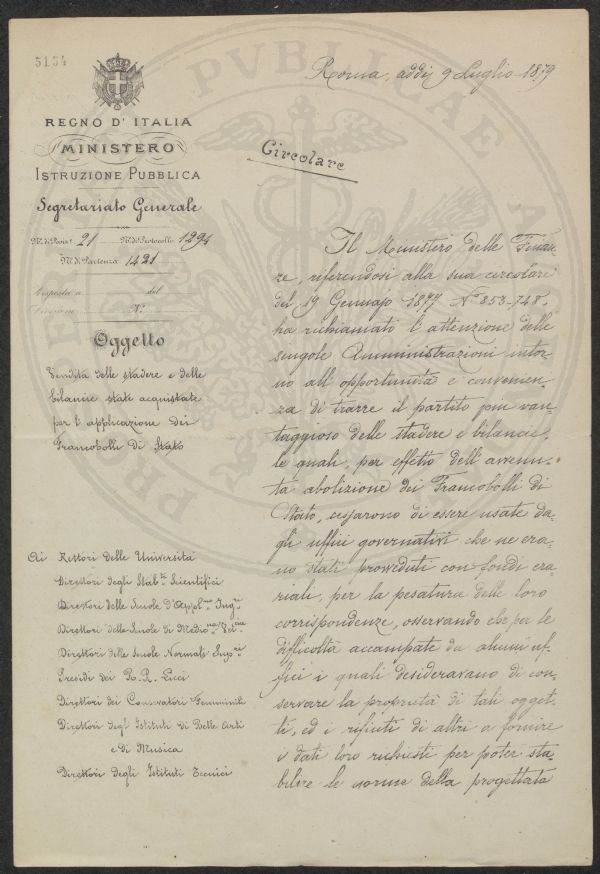 5134
REGNO D'ITALIA
MINISTERO
ISTRUZIONE PUBBLICA
Segretariato Generale
N.º di Posiz.e 21 N.º di Protocollo 1294
N.º di Partenza 1421
Risposta a del
Divisione N.º
Oggetto
Vendita delle stadere e delle
bilancie state acquistate
per l'applicazione dei
Francobolli di Stato
Ai Rettori delle Università
Direttori degli Stab.ti Scientifici
Direttori delle Scuole d'Appl.ne Ing.ri
Direttori delle Scuole di Medic.na Vet.ria
Direttori delle Scuole Normali Sup.ri
Presidi dei R.R. Licei
Direttori dei Conservatori Femminili
Direttori degl'Istituti di Belle Arti
e di Musica
Direttori degli Istituti Tecnici
Roma, addì 9 Luglio 1879
Circolare
Il Ministero delle Finan
ze, riferendosi alla sua circolare
del 19 Gennajo 1877 N.º 853-748,
ha richiamato l'attenzione delle
singole Amministrazioni intor-
no all'opportunità e convenien-
za di trarre il partito più van-
taggioso delle stadere e bilancie,
le quali, per effetto dell'avvenu-
ta abolizione dei Francobolli di
Stato, cessarono di essere usate da-
gli uffici governativi che ne era-
no stati provveduti con fondi era-
riali, per la pesatura delle loro
corrispondenze, osservando che per le
difficoltà accampate da alcuni uf-
fici i quali desideravano di con-
servare la proprietà di tali ogget-
ti, ed i rifiuti di altri a fornire
i dati loro richiesti per poter sta-
bilire le norme della progettata